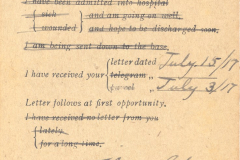 I have been admitted into hospital
{ sick } and am going on well.
{ wounded } and hope to be discharged soon.
I am being sent down to the base.
{ letter dated July 15/17
I have received your { telegram " July 3/17
{ parcel "
Letter follows at first opportunity.
I have received no letter from you
{ lately.
{ for a long time.